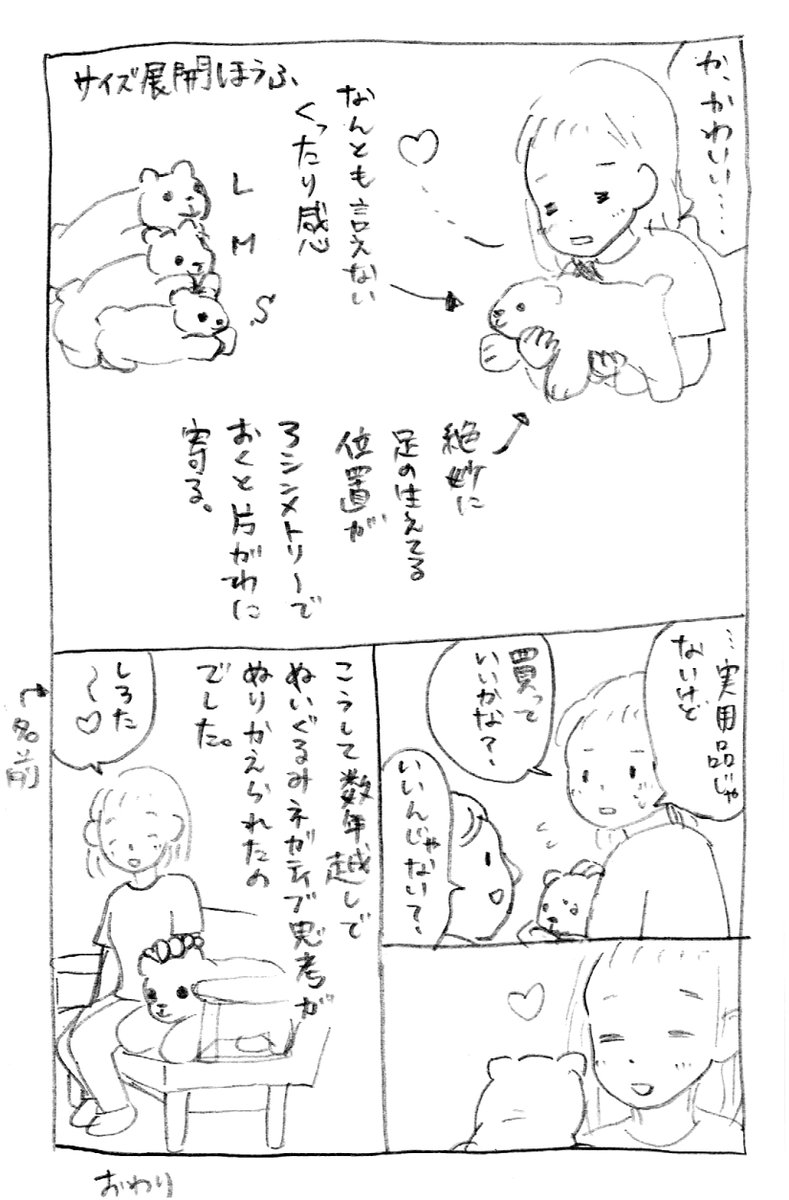 か、かわいい…
なんとも言えない
くったり感
サイズ展開ほうふ
L
M
S
絶妙に
足の生えてる
位置が
ろシンメトリーで
おくと片がわに
寄る。
…実用品じゃ
ないけど
買って
いいかな？
いいんじゃない？
こうして数年越しで
ぬいぐるみネガティブ思考が
ぬりかえられたの
でした。
しろた
〜♡
名前
おわり